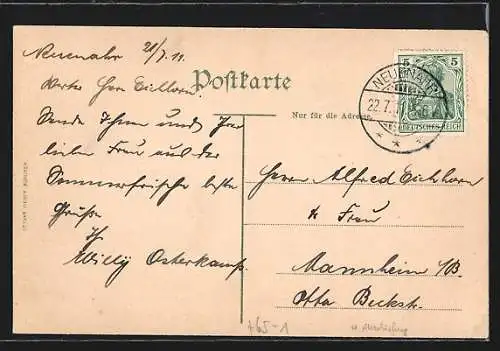 Neuenahr 21/7.11.
Wertes Herr Eichhorn.
Sende Ihnen und Ihrer
lieben Frau aus der
Sommerfrische beste
Grüße
Ihr
Willy Osterkamp.
Postkarte
Nur für die Adresse.
5 5
DEUTSCHES REICH
NEUENAHR
22.7.
Herrn Alfred Eichhorn
& Frau
Mannheim I/B.
Otto Beckstr.
765-1